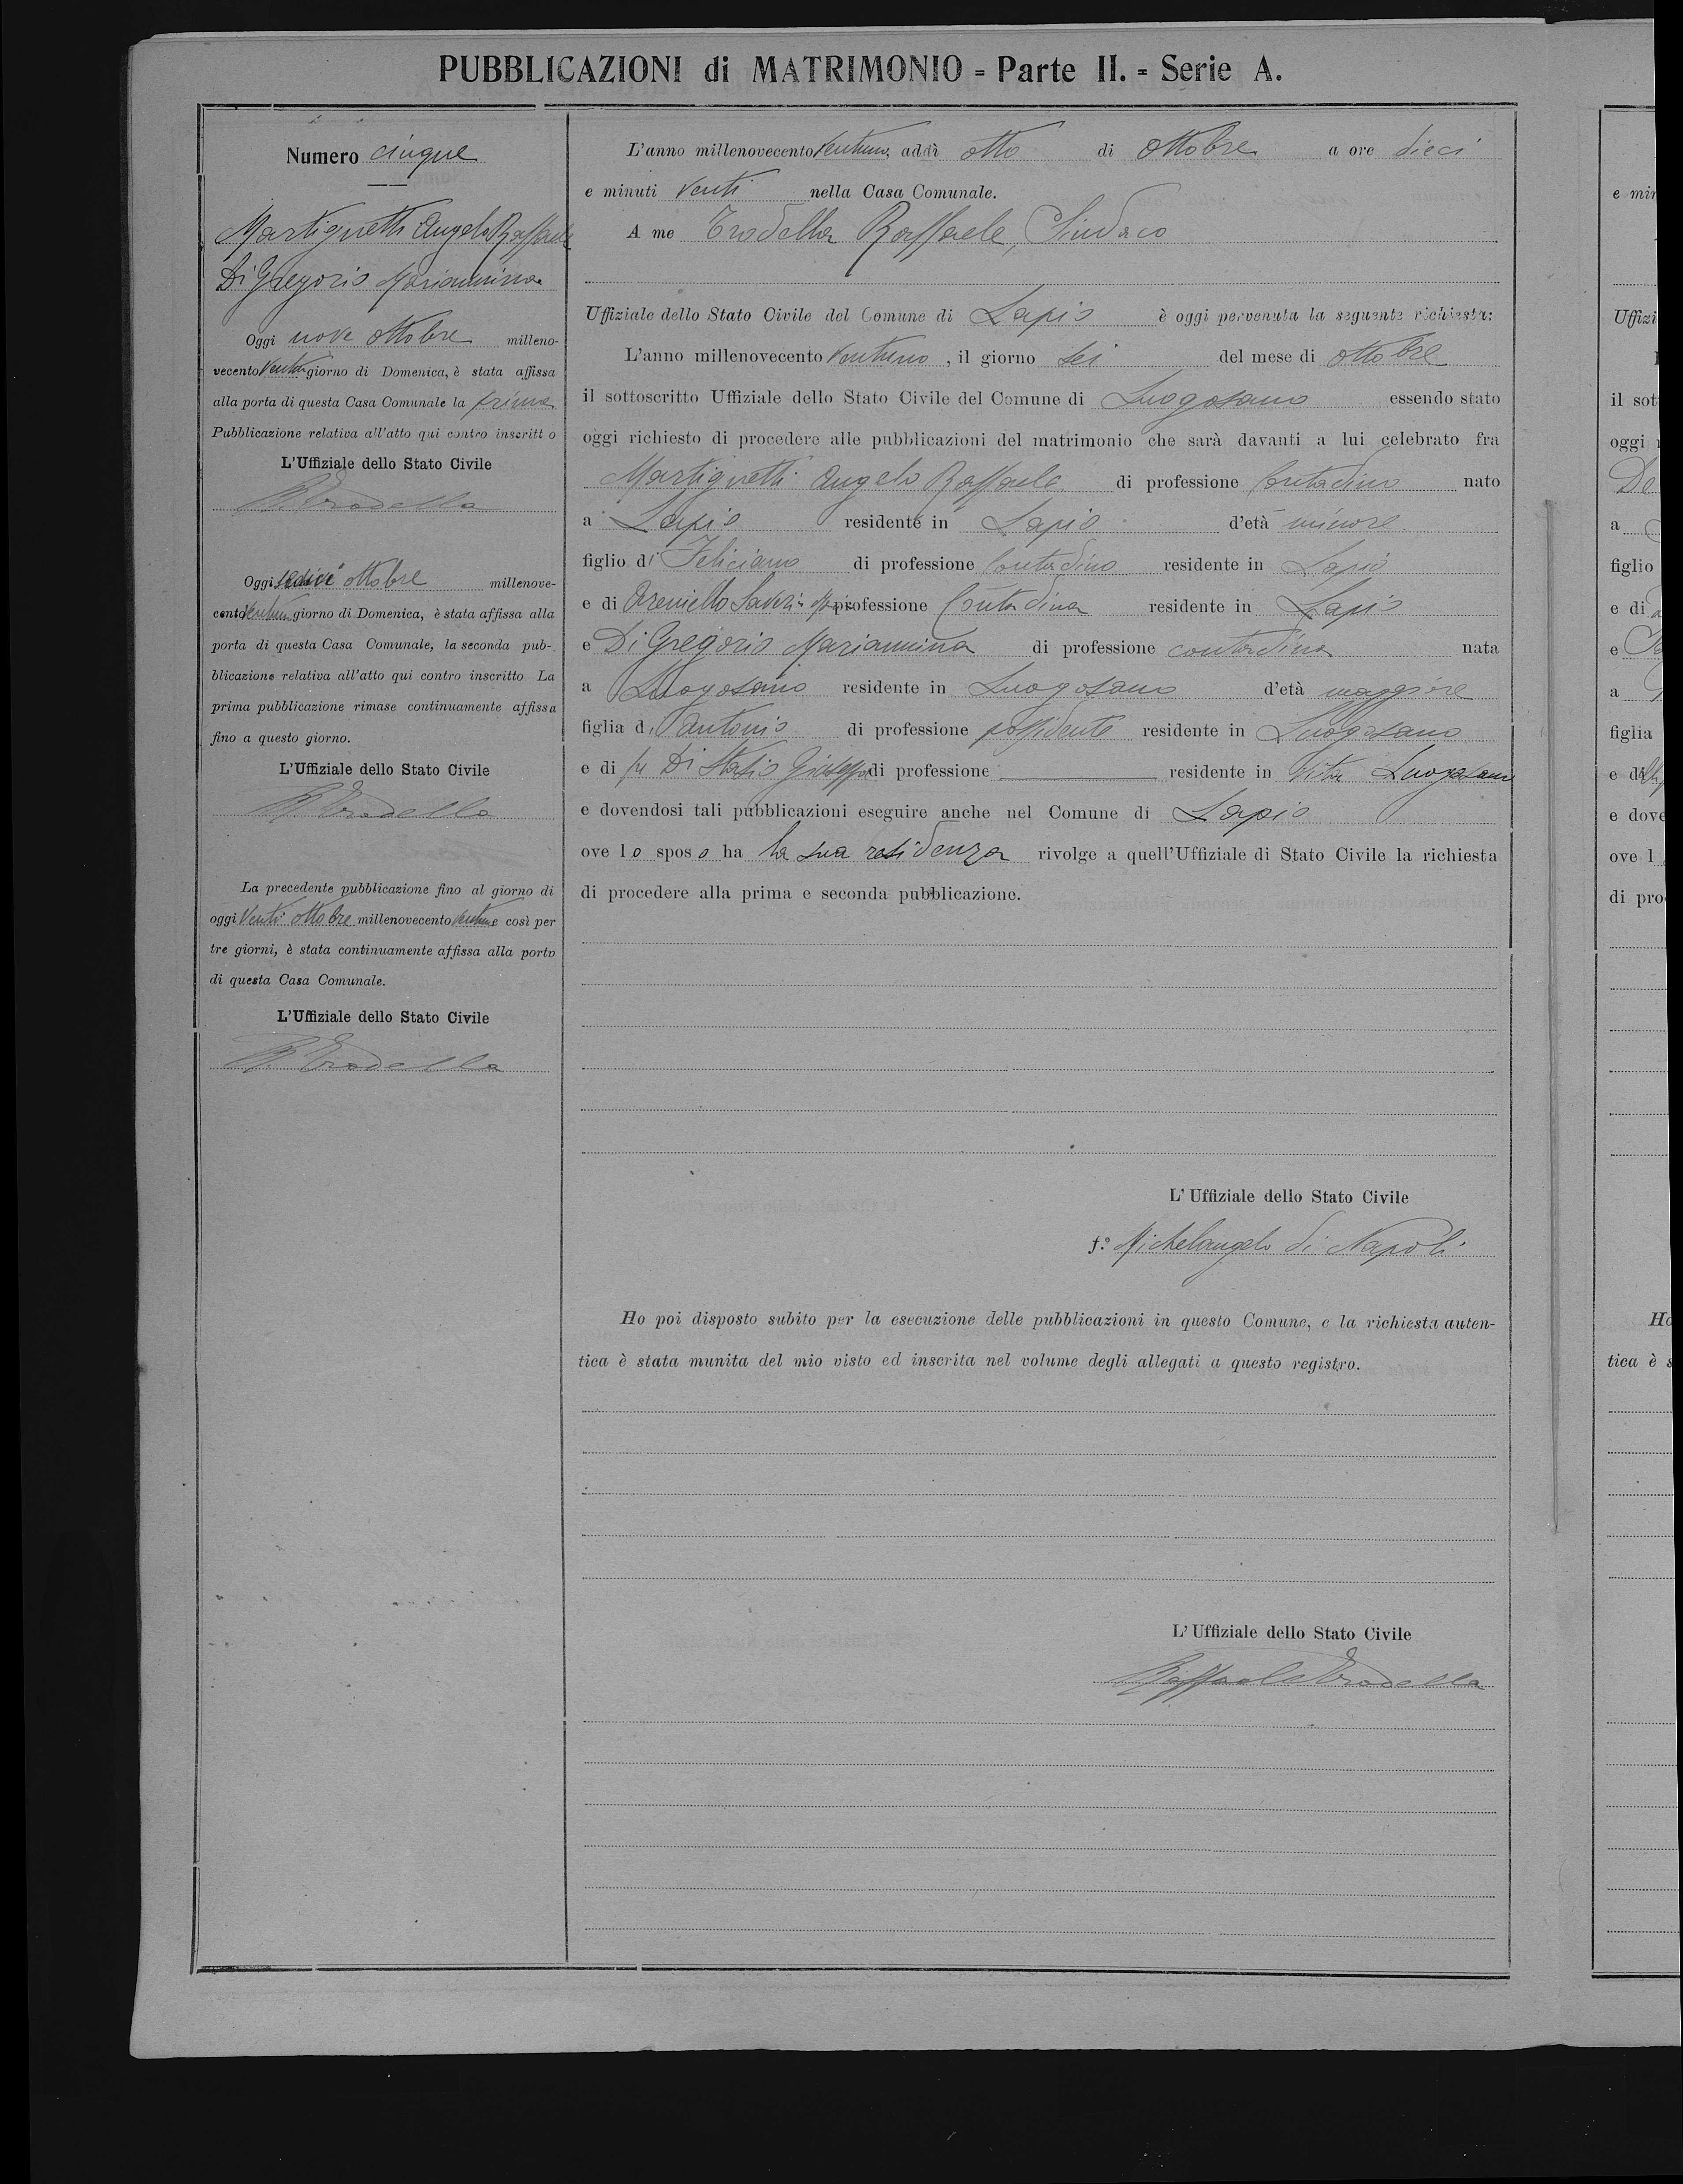 PUBBLICAZIONI di MATRIMONIO = Parte II. = Serie A.
Numero cinque
Martignetti Angelo Raffaele
Di Gregorio Mariannina
Oggi nove ottobre milleno-
vecento ventuno giorno di Domenica, è stata affissa
alla porta di questa Casa Comunale la prima
Pubblicazione relativa all'atto qui contro inscritt o
L'Uffiziale dello Stato Civile
R. Trodella
Oggi sedici ottobre millenove-
cento ventuno giorno di Domenica, è stata affissa alla
porta di questa Casa Comunale, la seconda pub-
blicazione relativa all'atto qui contro inscritto La
prima pubblicazione rimase continuamente affissa
fino a questo giorno.
L'Uffiziale dello Stato Civile
R. Trodella
La precedente pubblicazione fino al giorno di
oggi Venti ottobre millenovecento ventuno e così per
tre giorni, è stata continuamente affissa alla porta
di questa Casa Comunale.
L'Uffiziale dello Stato Civile
R. Trodella
L'anno millenovecento ventuno, addì otto di ottobre a ore dieci
e minuti venti nella Casa Comunale.
A me Trodella Raffaele, Sindaco
Uffiziale dello Stato Civile del Comune di Lapio è oggi pervenuta la seguente richiesta:
L'anno millenovecento ventuno, il giorno sei del mese di ottobre
il sottoscritto Uffiziale dello Stato Civile del Comune di Luogosano essendo stato
oggi richiesto di procedere alle pubblicazioni del matrimonio che sarà davanti a lui celebrato fra
Martignetti Angelo Raffaele di professione Contadino nato
a Lapio residente in Lapio d'età minore
figlio di Feliciano di professione Contadino residente in Lapio
e di professione Contadina residente in Lapio
e Di Gregorio Mariannina di professione contadina nata
a Luogosano residente in Luogosano d'età maggiore
figlia di Antonio di professione possidente residente in Luogosano
e di fu Di Stasio Giuseppa di professione residente in vita Luogosano
e dovendosi tali pubblicazioni eseguire anche nel Comune di Lapio
ove lo sposo ha la sua residenza rivolge a quell'Uffiziale di Stato Civile la richiesta
di procedere alla prima e seconda pubblicazione.
L'Uffiziale dello Stato Civile
f.º Michelangelo di Napoli
Ho poi disposto subito per la esecuzione delle pubblicazioni in questo Comune, e la richiesta auten-
tica è stata munita del mio visto ed inscrita nel volume degli allegati a questo registro.
L'Uffiziale dello Stato Civile
Raffaele Trodella
e min
Uffizi
il sot
oggi
De
a
figlio
e di
e
a
figlia
e di
e dove
ove l
di pro
Ho
tica è s